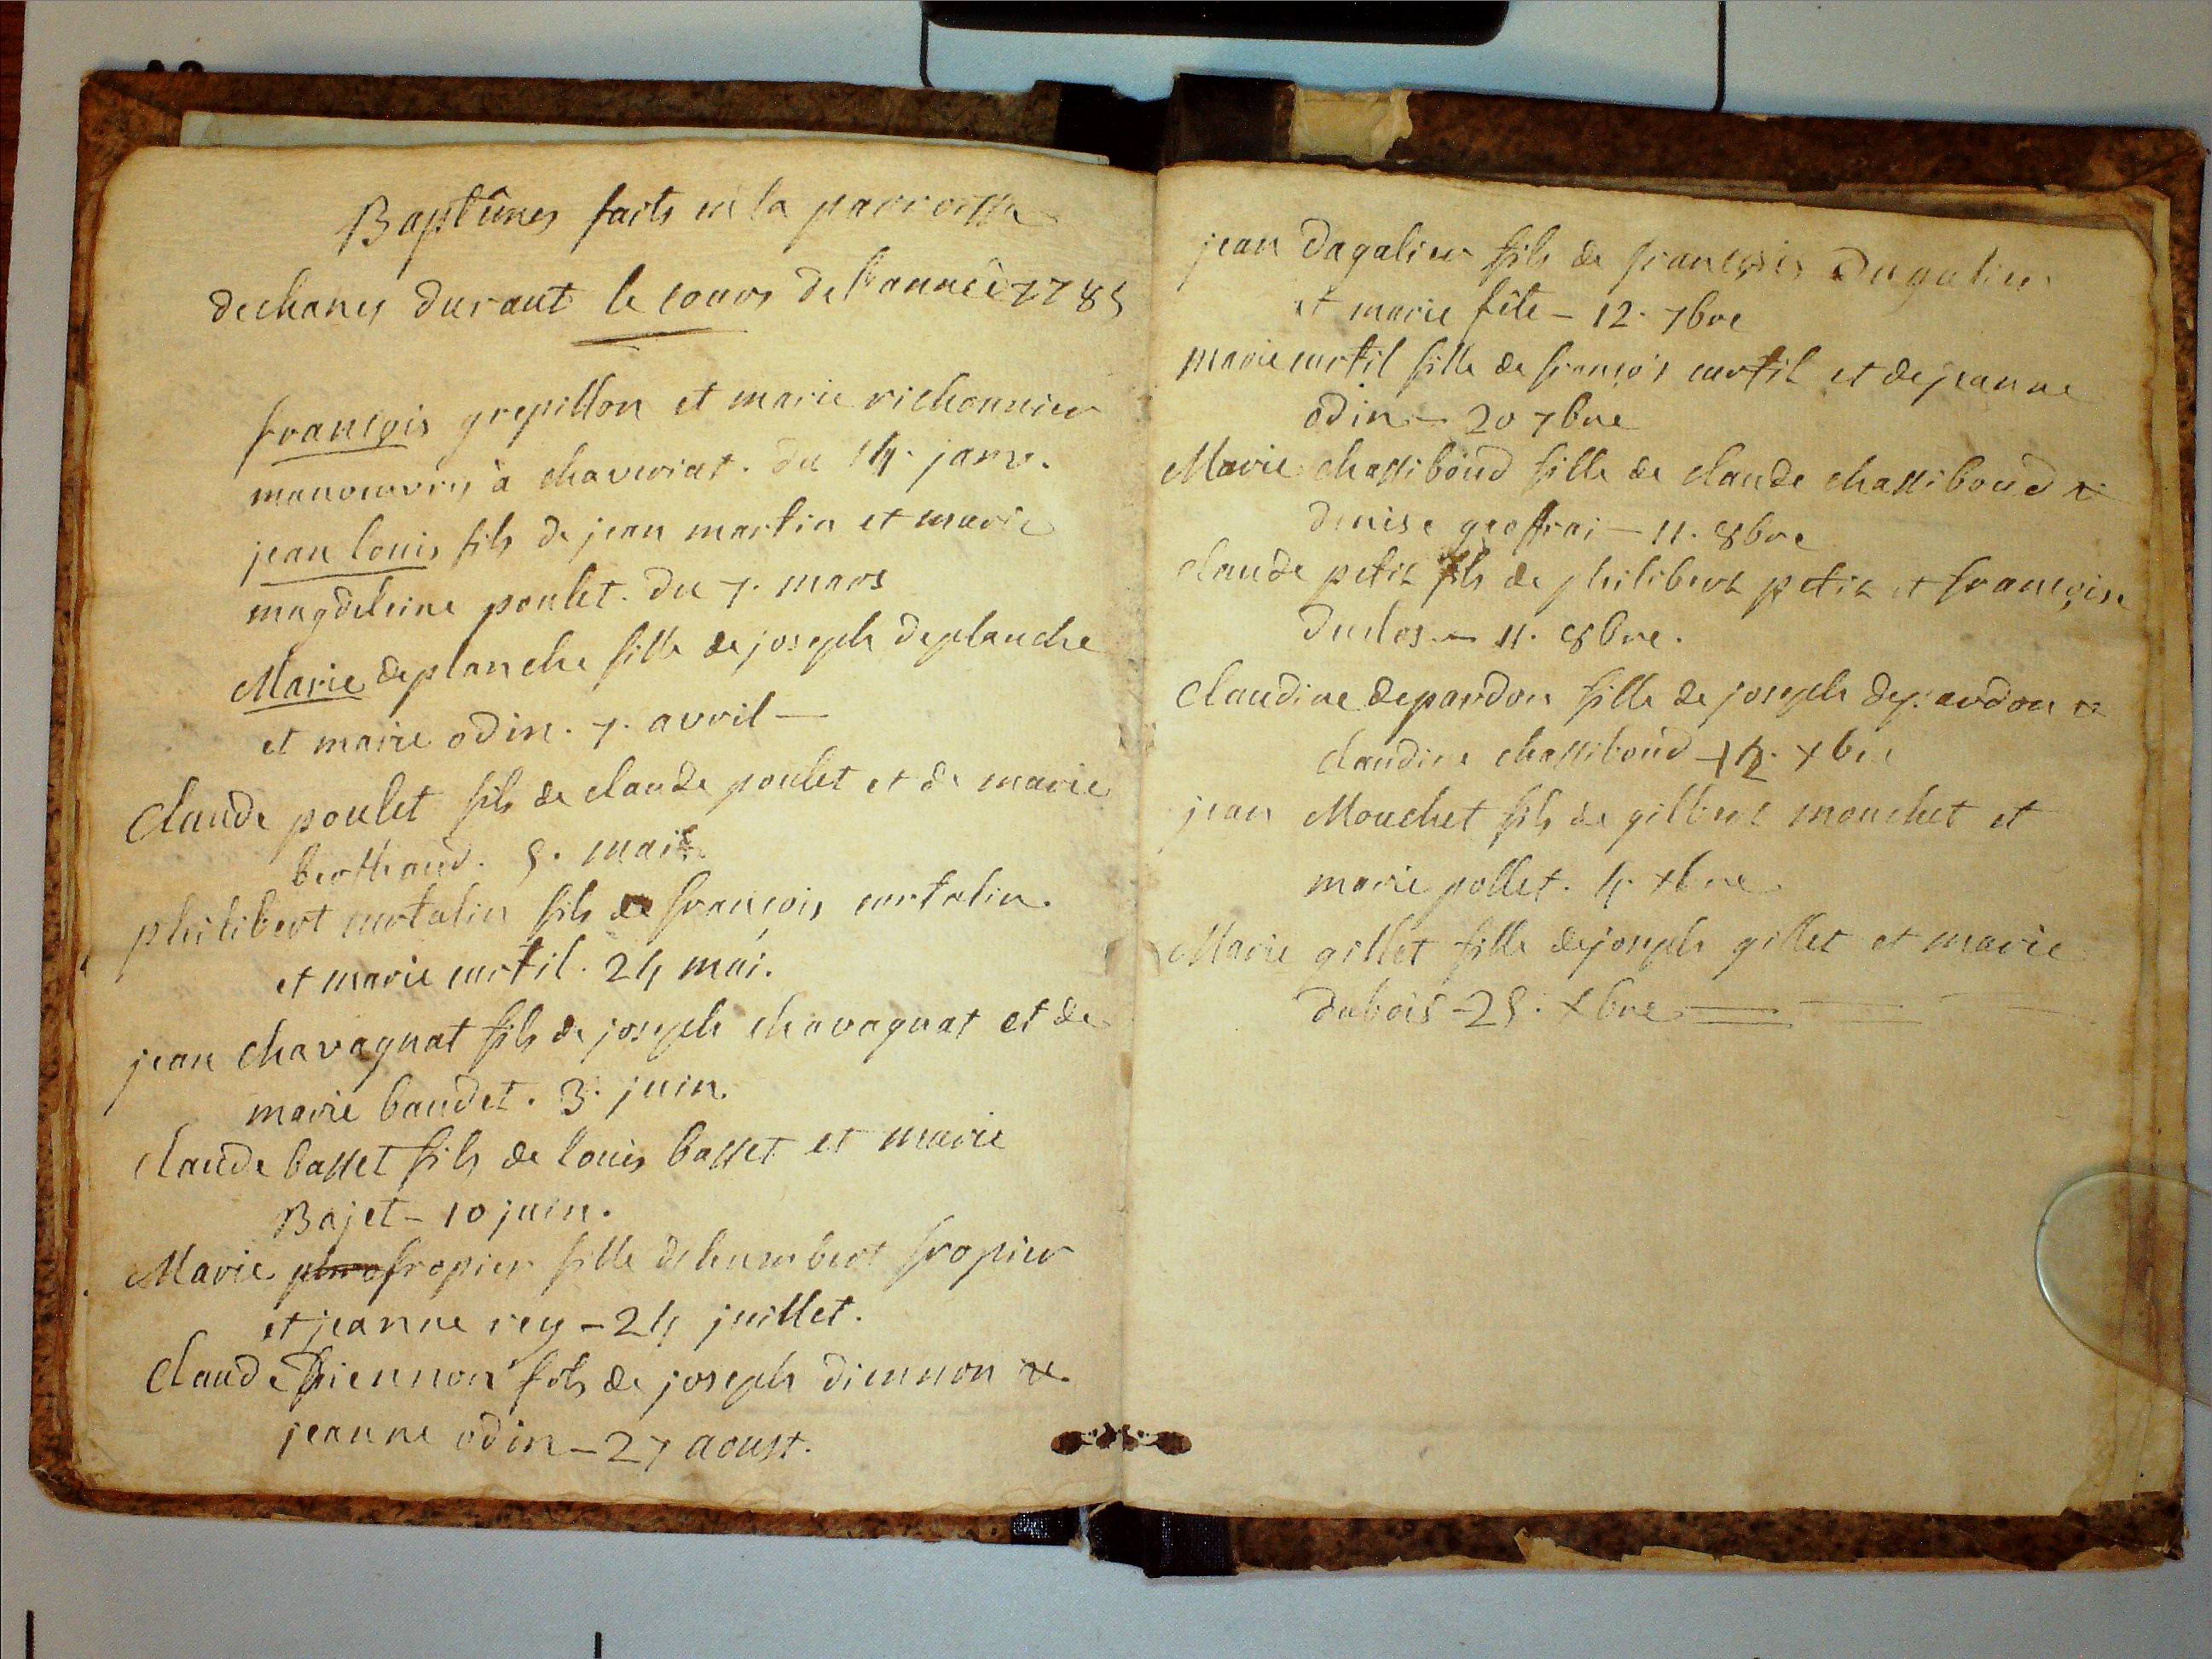 Baptêmes faits en la parroisse
de chanes durant le cours de l'année 1785
françois grepillon et marie richonnier
manouvriers à chaveriat. du 14. janv.
jean louis fils de jean martin et marie
magdeleine poulet. du 7. mars
Marie deplanche fille de joseph deplanche
et marie odin. 7. avril —
Claude poulet fils de claude poulet et de marie
berthaud. 5. mai
philibert curtalin fils de françois curtalin.
et marie curtil. 24 mai.
jean chavagnat fils de joseph chavagnat et de
marie baudet. 3. juin.
claude basset fils de louis basset et marie
Bajet – 10 juin.
Marie fropier fille de humbert fropier
et jeanne rey – 24 juillet.
Claude Diennon fils de joseph diennon et
jeanne odin – 27 aoust.
jean dagalier fils de françois Dagalier
et marie fête – 12. 7bre
marie curtil fille de françois curtil et de jeanne
odin – 20 7bre
Marie chassiboud fille de claude chassiboud et
denise geoffrai – 11. 8bre
claude petit fils de philibert petit et françoise
duclos – 11. 8bre.
Claudine depardon fille de joseph depardon et
claudine chassiboud – 12. xbre
jean Mouchet fils de gilbert mouchet et
marie pollet. 4. xbre
Marie gillet fille de joseph gillet et marie
dubois – 25. xbre